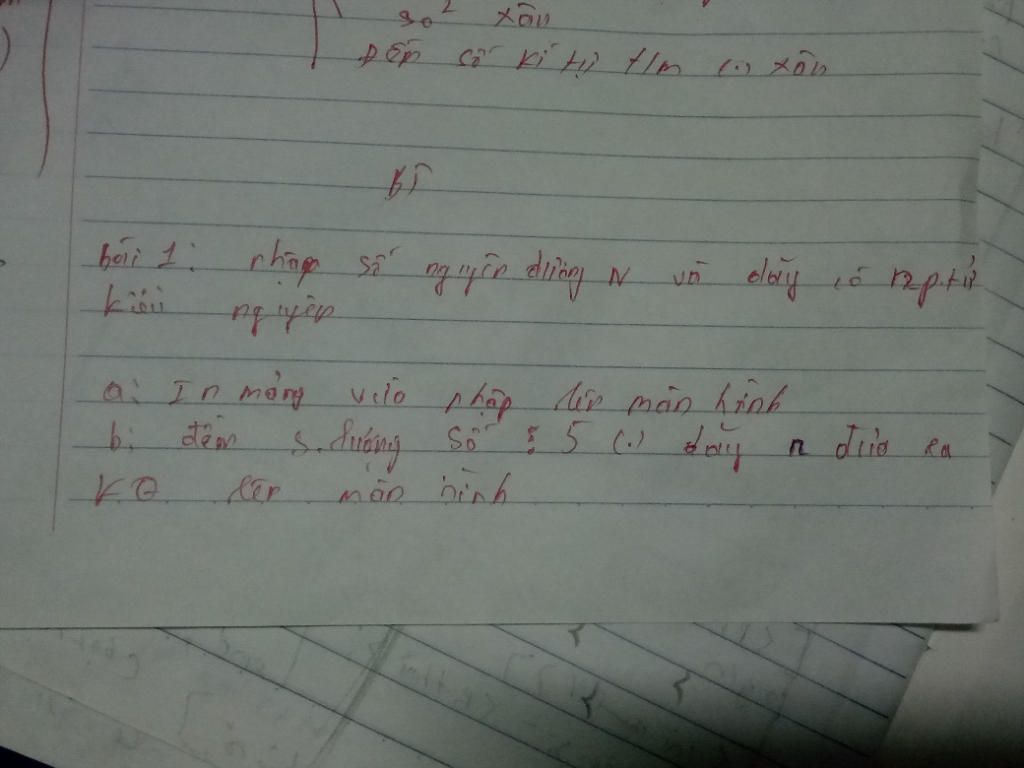 so² xâu
Đếm số kí tự t/m (.) xâu
BT
bài 1: nhập số nguyên dương N và dãy có n p.tử
kiểu nguyên
a: In mảng vừa nhập lên màn hình
b: đếm s.lượng số ⋮ 5 (.) dãy n đưa ra
KQ lên màn hình